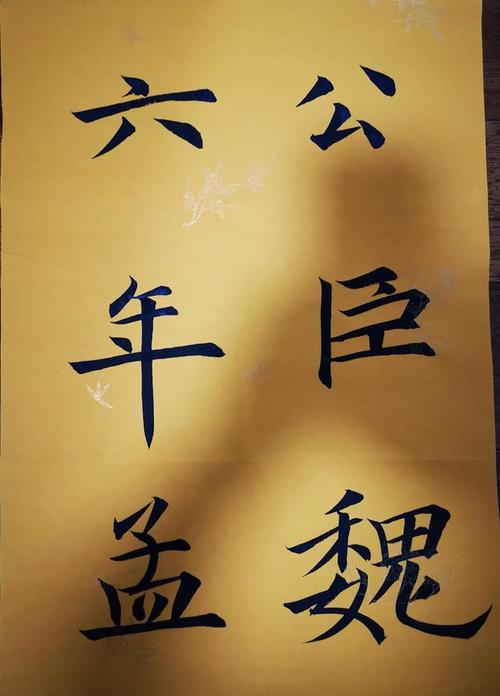 公臣魏
六年孟